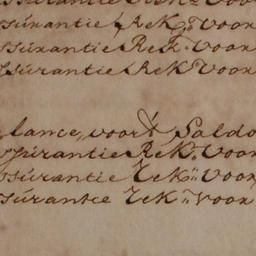 ssurantie Rek:ᵍ Voor
ssurantie Rek:ᵍ Voor
ssurantie Rek:ᵍ Voor
lance,, voor't Saldo
ssurantie Rek:ᵍ Voor
ssurantie Rek:ᵍ Voor
ssurantie Rek:ᵍ Voor